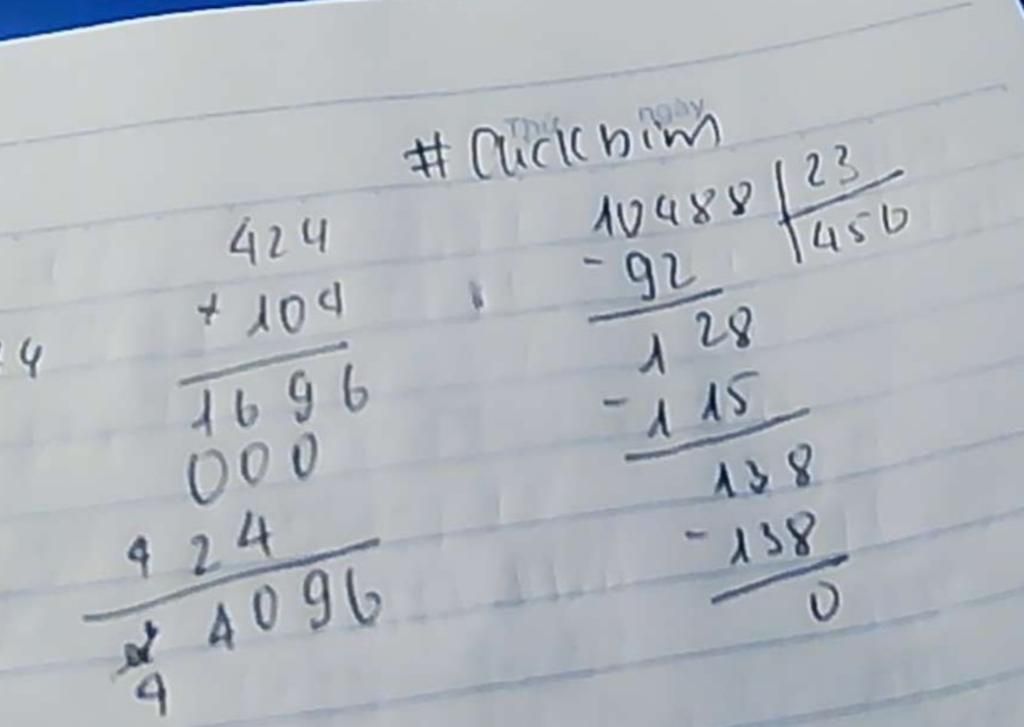 Thứ ngày
#Clickbim
424
× 104
1696
000
424
44096
: 4
10488 | 23
- 92 | 456
128
- 115
138
- 138
0